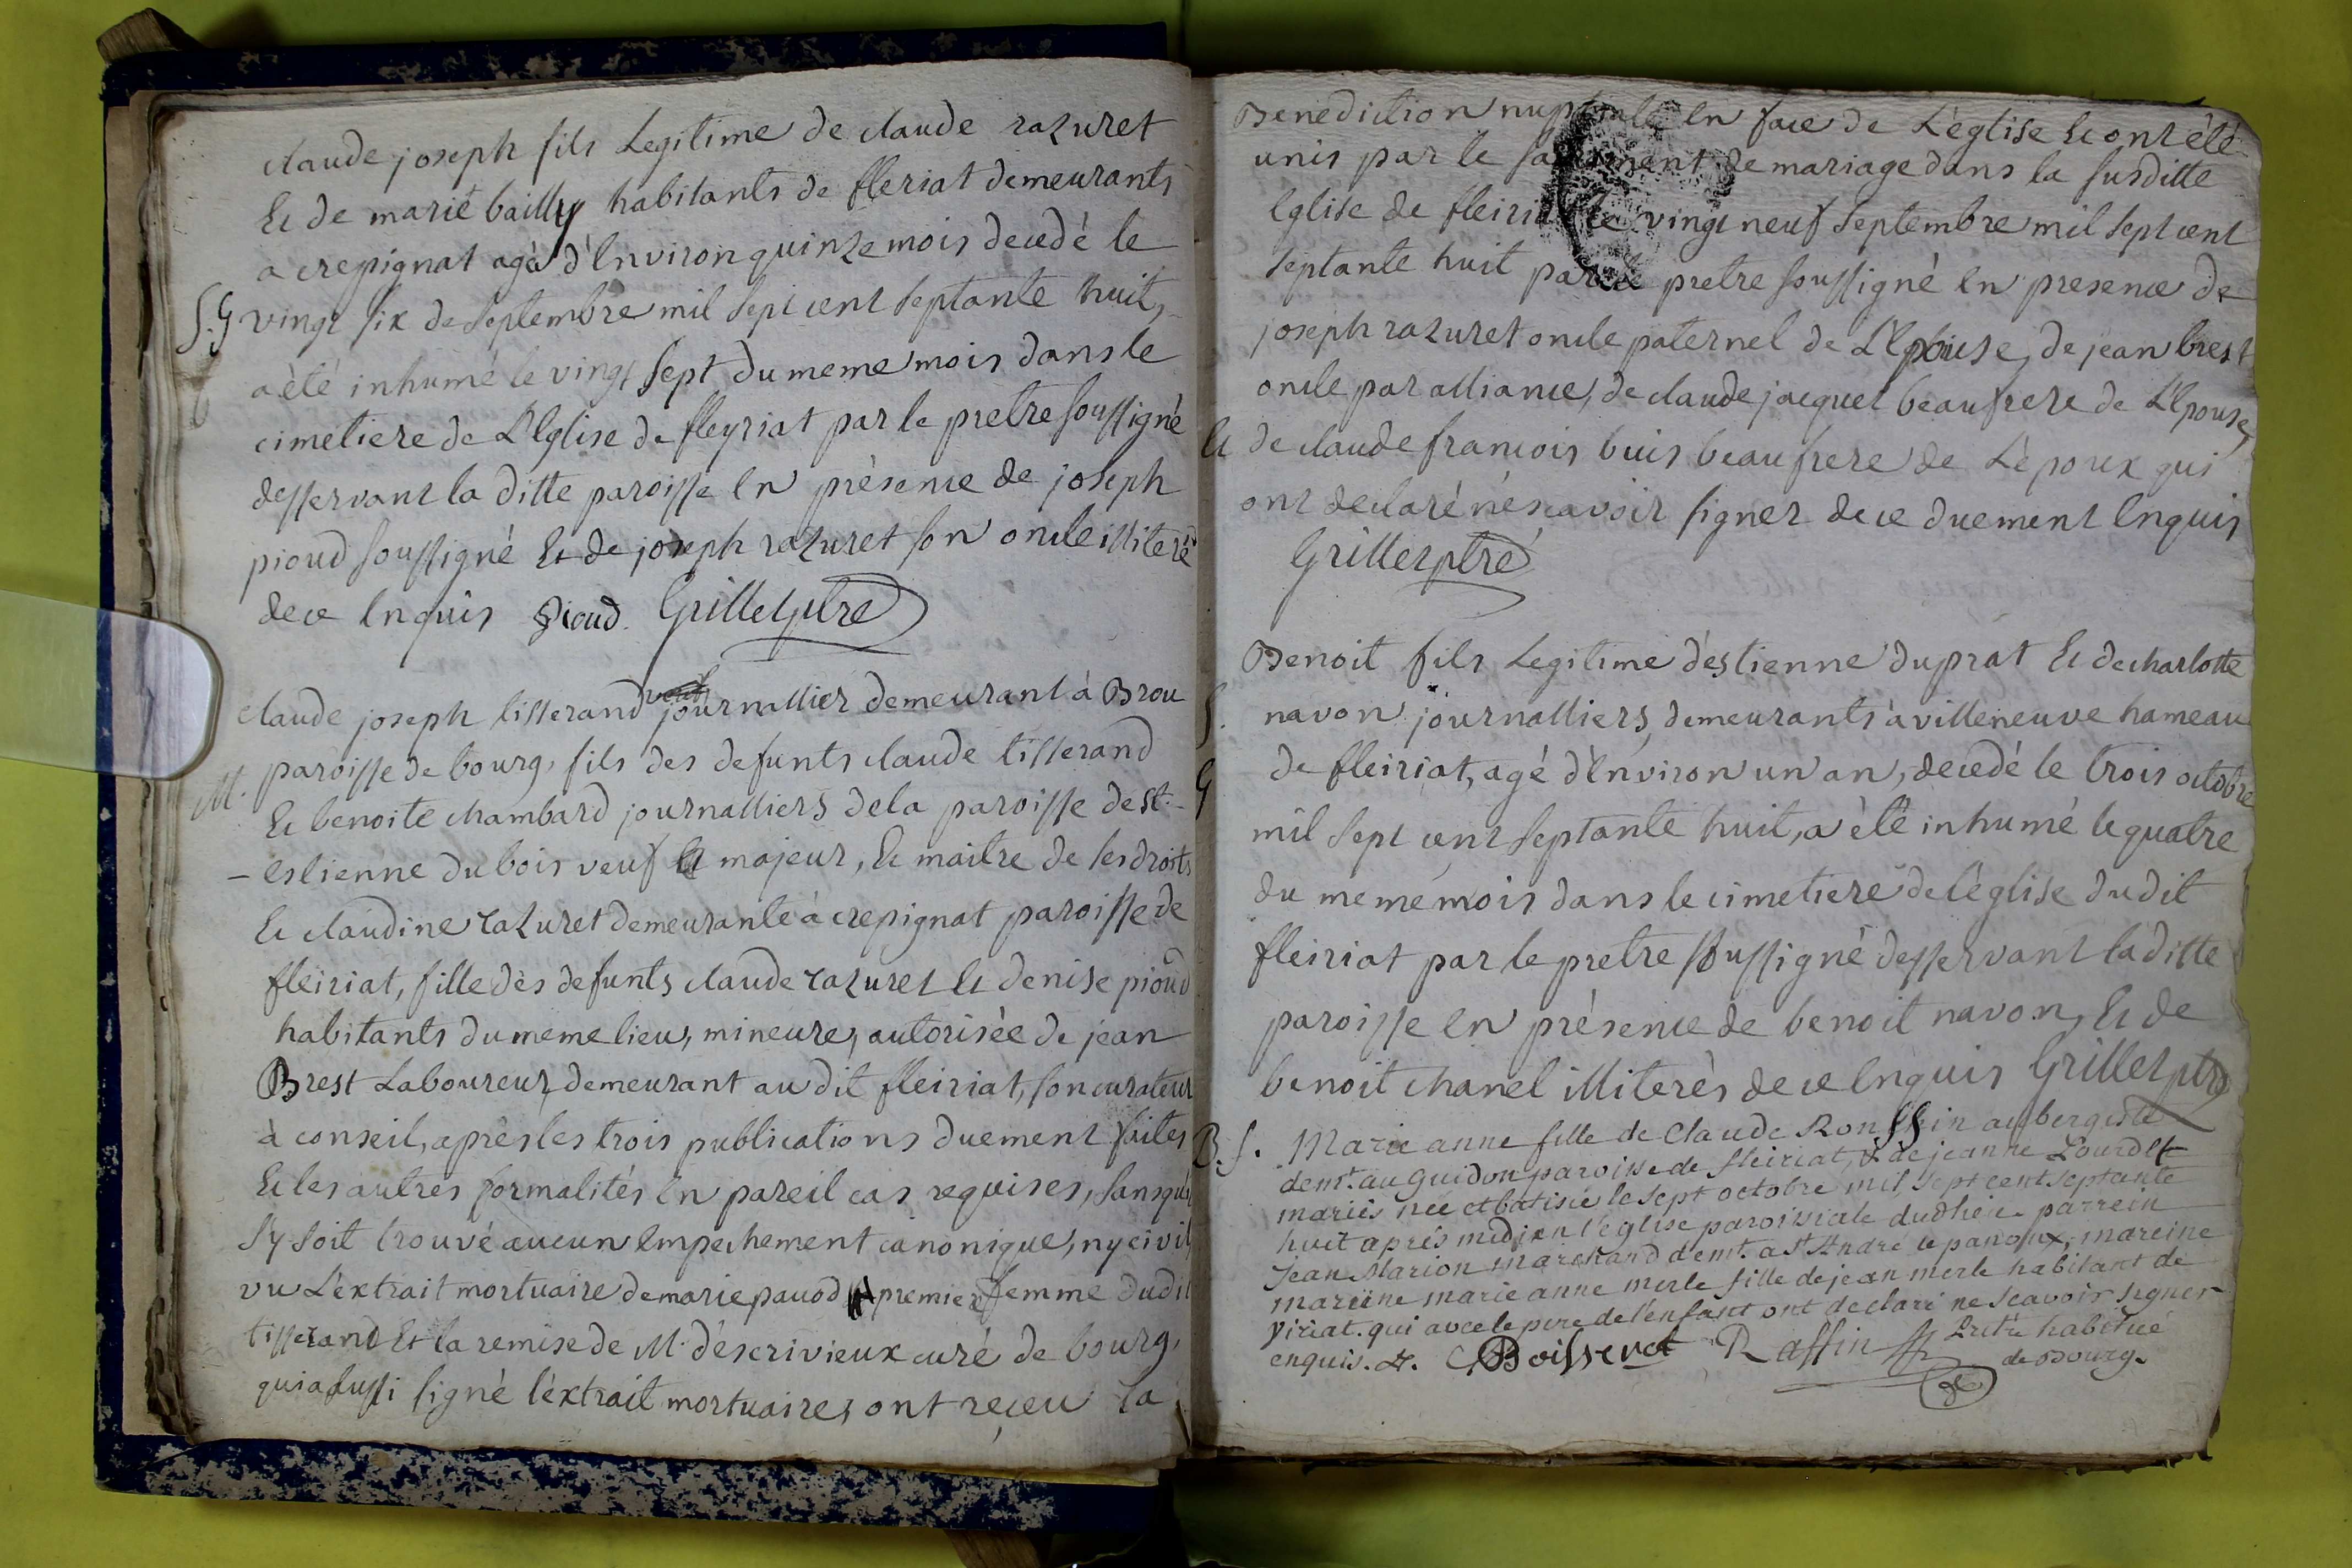 claude joseph fils Legitime de claude razuret
Et de marie bailly habitants de fleriat demeurants
a crepignat agé d'Environ quinze mois decedé le
S.G vingt six de Septembre mil sept cent septante huit,
a été inhumé le vingt sept du meme mois dans le
cimetiere de L'Eglise de fleyriat par le pretre soussigné
desservant la ditte paroisse En présence de joseph
pioud soussigné Et de joseph razuret son oncle illiteré
de ce Enquis Pioud. Grillet ptre
claude joseph tisserand journallier demeurant à Brou
M. paroisse de bourg, fils des defunts claude tisserand
Et benoite chambard journalliers de la paroisse de st.-
- Estienne du bois veuf Et majeur, Et maitre de ses droits
Et claudine razuret demeurante à crepignat paroisse de
fleiriat, fille dès defunts claude razuret Et denise pioud
habitants du meme lieu, mineure, autorisée de jean
Brest Laboureur, demeurant au dit fleiriat, son curateur
à conseil, après les trois publications duement faites
Et les autres formalités En pareil cas requises, sans qu'il
s'y soit trouvé aucun Empechement canonique, ny civil
vu L'extrait mortuaire de marie pauod premier femme dudit
tisserand Et la remise de M. déscrivieux curé de bourg,
qui a aussi signé l'éxtrait mortuaire, ont reçeu la
Benediction nuptiale En face de L'église Et ont été
unis par le sacrement de mariage dans la susditte
Eglise de fleiriat le vingt neuf Septembre mil sept cent
septante huit par le pretre soussigné En presence de
joseph razuret oncle paternel de L'Epouse, de jean brest
oncle par alliance, de claude jacquet beaufrere de L'Epouse,
Et de claude francois buis beaufrere de L'époux qui
ont declaré né scavoir signer de ce duement Enquis
Grillet ptre
Benoit fils Legitime d'éstienne duprat Et de charlotte
S. navon journalliers, demeurants à villeneuve hameau
G de fleiriat, agé d'Environ un an, decedé le trois octobre
mil sept cent septante huit, a été inhumé le quatre
du meme mois dans le cimetiere de l'église dudit
fleiriat par le pretre soussigné desservant la ditte
paroisse En présence de benoit navon, Et de
benoit chanel illiterés de ce Enquis Grillet ptre
B.f. Marie anne fille de Claude Ronssin aubergiste
demt. au Guidon paroisse de fleiriat, & de jeanne Lourdet
mariés née et batisée le sept octobre mil sept cent septante
huit après midi en l'église paroissiale dudt lieu parrein
Jean Marion marchand demt. a St André le panoux, mareine
mareine marie anne merle fille de jean merle habitant de
viriat. qui avec le pere de l'enfant ont declaré ne scavoir signer
enquis. &. Boisseret Raffin Pretre habitué
de Bourg.